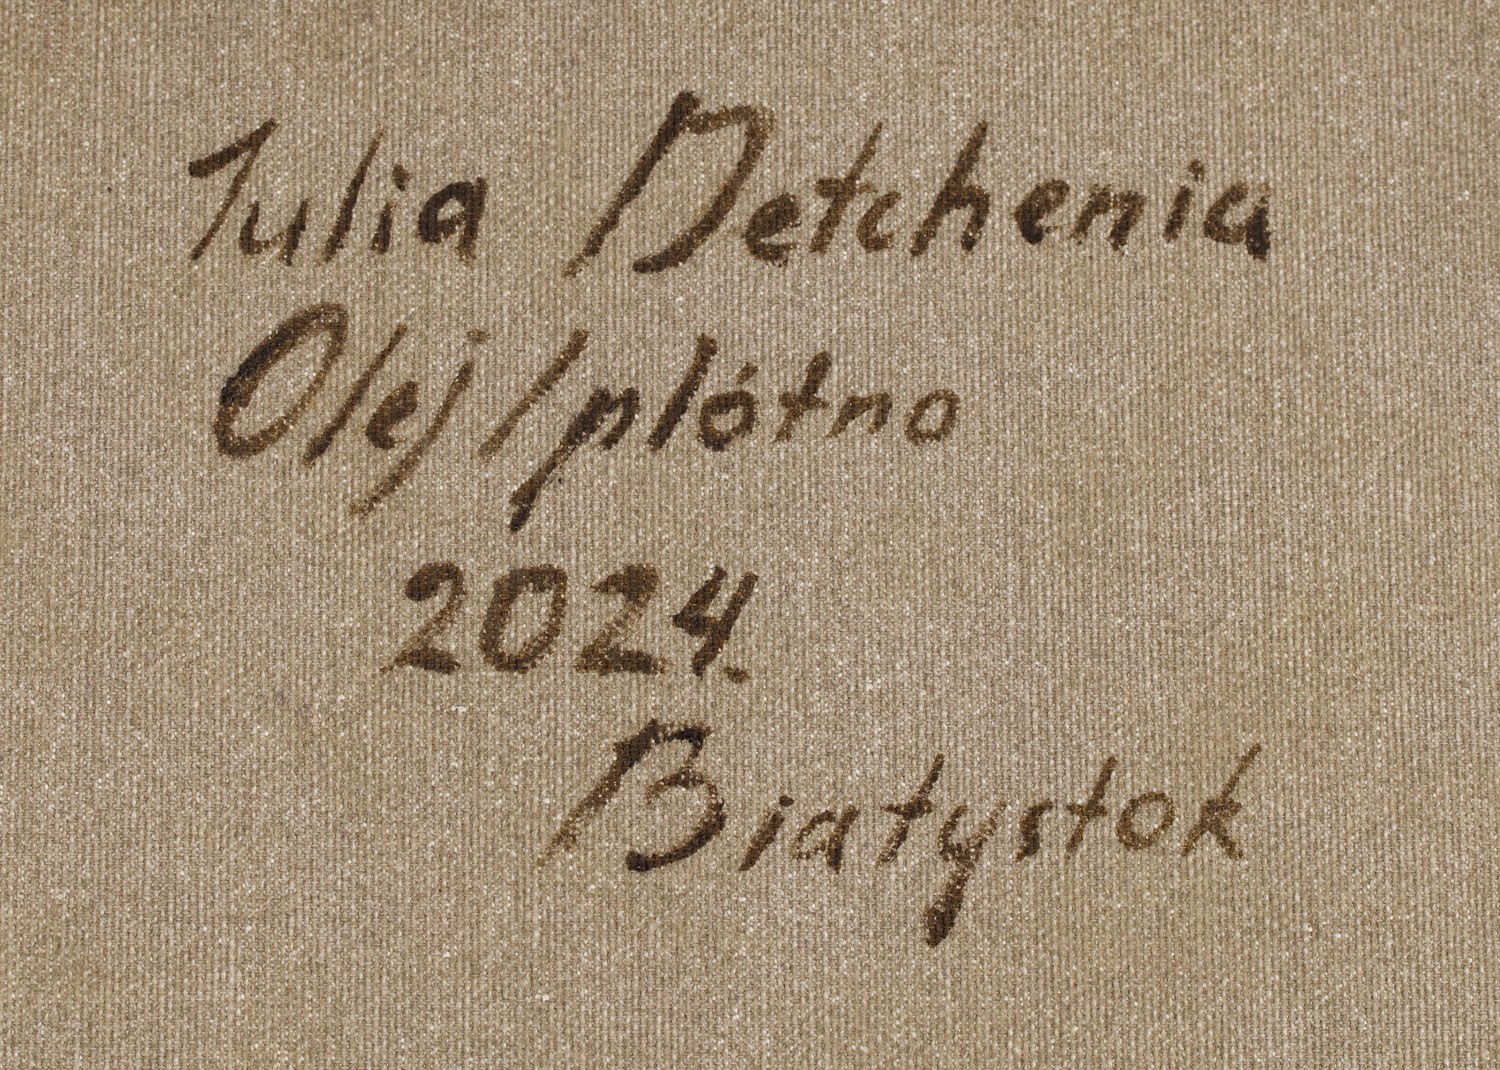 Iulia Detchenia
Olej/płótno
2024.
Białystok